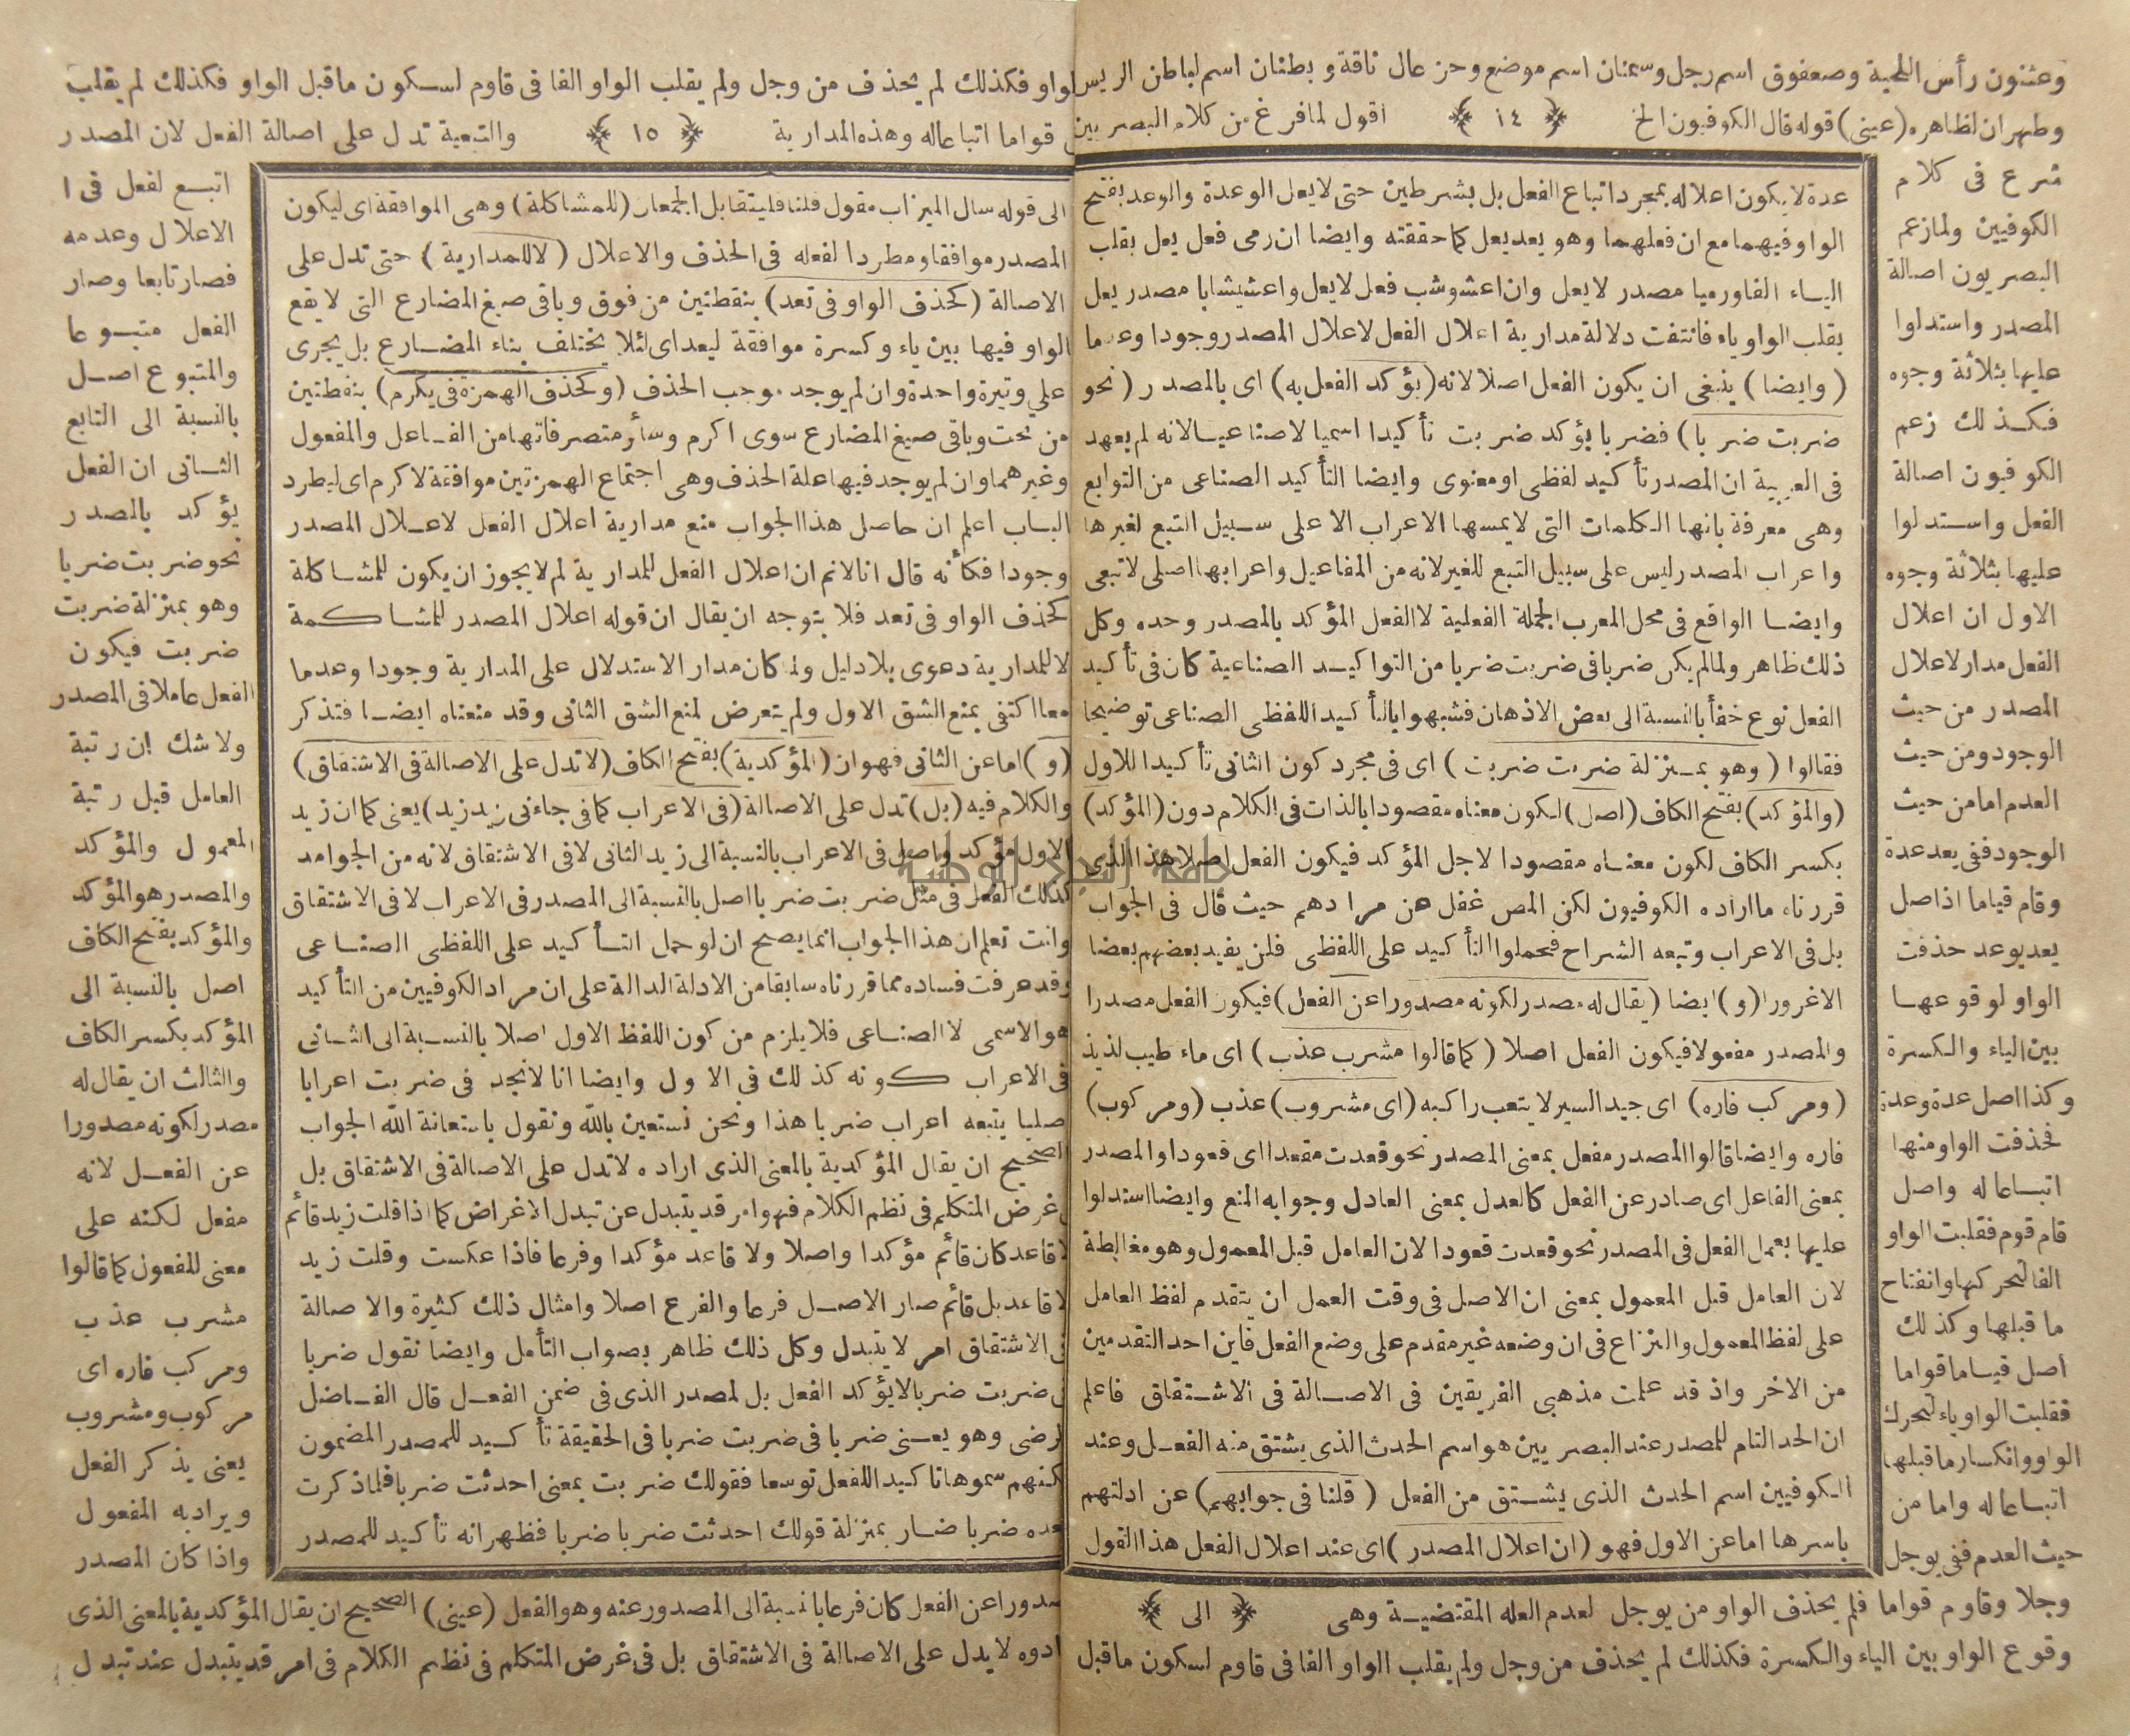 وعثنون رأس اللحية وصعفوق اسم رجل وسمنان اسم موضع وخزعال ناقة وبطنان اسم لباطن الريس
وطهران لظاهره (عينى) قوله قال الكوفيون الخ ﴿ ١٤ ﴾ اقول لما فرغ من كلام البصريين
شرع فى كلام
الكوفيين ولما زعم
البصريون اصالة
المصدر واستدلوا
عليها بثلاثة وجوه
فكذلك زعم
الكوفيون اصالة
الفعل واستدلوا
عليها بثلاثة وجوه
الاول ان اعلال
الفعل مدار لاعلال
المصدر من حيث
الوجود ومن حيث
العدم اما من حيث
الوجود ففى يعد عدة
وقام قياما اذ اصل
يعد يوعد حذفت
الواو لوقوعها
بين الياء والكسرة
وكذا اصل عدة وعدة
فحذفت الواو منها
اتباعا له واصل
قام قوم فقلبت الواو
الفا لتحركها وانفتاح
ما قبلها وكذلك
اصل قياما قواما
فقلبت الواو ياء لتحرك
الواو وانكسار ما قبلها
اتباعا له واما من
حيث العدم ففى يوجل
عدة لا يكون اعلاله بمجرد اتباع الفعل بل بشرطين حتى لا يعل الوعدة والوعد بفتح
الواو فيهما مع ان فعلهما وهو يعد يعل كما حققته وايضا ان رمى فعل يعل بقلب
الياء الفا ورميا مصدر لا يعل وان اعشوشب فعل لا يعل واعشيشابا مصدر يعل
بقلب الواو ياء فانتفت دلالة مدارية اعلال الفعل لاعلال المصدر وجودا وعدما
(وايضا) ينبغى ان يكون الفعل اصلا لانه (يؤكد الفعل به) اى بالمصدر (نحو
ضربت ضربا) فضربا يؤكد ضربت تأكيدا اسميا لا صناعيا لانه لم يعهد
فى العربية ان المصدر تأكيد لفظى او معنوى وايضا التأكيد الصناعى من التوابع
وهى معرفة بانها الكلمات التى لا يمسها الاعراب الا على سبيل التبع لغيرها
واعراب المصدر ليس على سبيل التبع للغير لانه من المفاعيل واعرابها اصلى لا تبعى
وايضا الواقع فى محل المعرب الجملة الفعلية لا الفعل المؤكد بالمصدر وحده وكل
ذلك ظاهر ولما لم يكن ضربا فى ضربت ضربا من التواكيد الصناعية كان فى تأكيد
الفعل نوع خفأ بالنسبة الى بعض الاذهان فشبهوا بالتأكيد اللفظى الصناعى توضيحا
فقالوا (وهو بمنزلة ضربت ضربت) اى فى مجرد كون الثانى تأكيدا للاول
(والمؤكد) بفتح الكاف (اصل) لكون معناه مقصودا بالذات فى الكلام دون (المؤكد)
بكسر الكاف لكون معناه مقصودا لاجل المؤكد فيكون الفعل اصلا هذا الذى
قررناه ما اراده الكوفيون لكن المص غفل عن مرادهم حيث قال فى الجواب
بل فى الاعراب وتبعه الشراح فحملوا التأكيد على اللفظى فلن يفيد بعضهم بعضا
الا غرورا (و) ايضا (يقال له مصدر لكونه مصدورا عن الفعل) فيكون الفعل مصدرا
والمصدر مفعولا فيكون الفعل اصلا (كما قالوا مشرب عذب) اى ماء طيب لذيذ
(ومركب فاره) اى جيد السير لا يتعب راكبه (اى مشروب) عذب (ومركوب)
فاره وايضا قالوا المصدر مفعل بمعنى المصدر نحو قعدت مقعدا اى قعودا والمصدر
بمعنى الفاعل اى صادر عن الفعل كالعدل بمعنى العادل وجوابه المنع وايضا استدلوا
عليها بعمل الفعل فى المصدر نحو قعدت قعودا لان العامل قبل المعمول وهو مغالطة
لان العامل قبل المعمول بمعنى ان الاصل فى وقت العمل ان يتقدم لفظ العامل
على لفظ المعمول والنزاع فى ان وضعه غير مقدم على وضع الفعل فاين احد التقدمين
من الاخر واذ قد علمت مذهبى الفريقين فى الاصالة فى الاشتقاق فاعلم
ان الحد التام للمصدر عند البصريين هو اسم الحدث الذى يشتق منه الفعل وعند
الكوفيين اسم الحدث الذى يشتق من الفعل (قلنا فى جوابهم) عن ادلتهم
باسرها اما عن الاول فهو (ان اعلال المصدر) اى عند اعلال الفعل هذا القول
وجلا وقاوم قواما فلم يحذف الواو من يوجل لعدم العله المقتضية وهى ﴿ الى ﴾
وقوع الواو بين الياء والكسرة فكذلك لم يحذف من وجل ولم يقلب الواو الفا فى قاوم لسكون ما قبل
لواو فكذلك لم يحذف من وجل ولم يقلب الواو الفا فى قاوم لسكون ما قبل الواو فكذلك لم يقلب
قواما اتباعا له وهذه المدارية ﴿ ١٥ ﴾ والتبعية تدل على اصالة الفعل لان المصدر
الى قوله سال الميزاب مقول قلنا فليتقابل الجمعان (للمشاكلة) وهى الموافقة اى ليكون
المصدر موافقا ومطردا لفعله فى الحذف والاعلال (لا للمدارية) حتى تدل على
الاصالة (كحذف الواو فى تعد) بنقطتين من فوق وباقى صيغ المضارع التى لا يقع
الواو فيها بين ياء وكسرة موافقة ليعد اى لئلا يختلف بناء المضارع بل يجرى
على وتيرة واحدة وان لم يوجد موجب الحذف (وكحذف الهمزة فى يكرم) بنقطتين
من تحت وباقى صيغ المضارع سوى اكرم وسائر متصرفاتها من الفاعل والمفعول
وغيرهما وان لم يوجد فيها علة الحذف وهى اجتماع الهمزتين موافقة لاكرم اى ليطرد
الباب اعلم ان حاصل هذا الجواب منع مدارية اعلال الفعل لاعلال المصدر
وجودا فكأنه قال انا لا نم ان اعلال الفعل للمدارية لم لا يجوز ان يكون للمشاكلة
كحذف الواو فى تعد فلا يتوجه ان يقال ان قوله اعلال المصدر للمشاكمة
لا للمدارية دعوى بلا دليل ولما كان مدار الاستدلال على المدارية وجودا وعدما
معا اكتفى بمنع الشق الاول ولم يتعرض لمنع الشق الثانى وقد منعناه ايضا فتذكر
(و) اما عن الثانى فهو ان (المؤكدية) بفتح الكاف (لا تدل على الاصالة فى الاشتقاق)
والكلام فيه (بل) تدل على الاصالة (فى الاعراب كما فى جاءنى زيد زيد) يعنى كما ان زيد
الاول مؤكد واصل فى الاعراب بالنسبة الى زيد الثانى لا فى الاشتقاق لانه من الجوامد
كذلك الفعل فى مثل ضربت ضربا اصل بالنسبة الى المصدر فى الاعراب لا فى الاشتقاق
وانت تعلم ان هذا الجواب انما يصح ان لو حمل التأكيد على اللفظى الصناعى
وقد عرفت فساده مما قررناه سابقا من الادلة الدالة على ان مراد الكوفيين من التأكيد
هو الاسمى لا الصناعى فلا يلزم من كون اللفظ الاول اصلا بالنسبة الى الثانى
فى الاعراب كونه كذلك فى الاول وايضا انا لا نجد فى ضربت اعرابا
صليا يتبعه اعراب ضربا هذا ونحن نستعين بالله ونقول باستعانة الله الجواب
الصحيح ان يقال المؤكدية بالمعنى الذى اراده لا تدل على الاصالة فى الاشتقاق بل
غرض المتكلم فى نظم الكلام فهو امر قد يتبدل عن تبدل الاغراض كما اذا قلت زيد قائم
لا قاعد كان قائم مؤكدا واصلا ولا قاعد مؤكدا وفرعا فاذا عكست وقلت زيد
لا قاعد بل قائم صار الاصل فرعا والفرع اصلا وامثال ذلك كثيرة والاصالة
فى الاشتقاق امر لا يتبدل وكل ذلك ظاهر بصواب التأمل وايضا نقول ضربا
ضربت ضربا لا يؤكد الفعل بل لمصدر الذى فى ضمن الفعل قال الفاضل
لرضى وهو يعنى ضربا فى ضربت ضربا فى الحقيقة تأكيد للمصدر المضمون
كنهم سموها تاكيدا للفعل توسعا فقولك ضربت بمعنى احدثت ضربا فلما ذكرت
عده ضربا صار بمنزلة قولك احدثت ضربا ضربا فظهر انه تأكيد للمصدر
اتبع لفعل فى ا
الاعلال وعدمه
فصار تابعا وصار
الفعل متبوعا
والمتبوع اصل
بالنسبة الى التابع
الثانى ان الفعل
يؤكد بالمصدر
نحو ضربت ضربا
وهو بمنزلة ضربت
ضربت فيكون
الفعل عاملا فى المصدر
ولا شك ان رتبة
العامل قبل رتبة
المعمول والمؤكد
والمصدر هو المؤكد
والمؤكد بفتح الكاف
اصل بالنسبة الى
المؤكد بكسر الكاف
والثالث ان يقال له
مصدر لكونه مصدورا
عن الفعل لانه
مفعل لكنه على
معنى للمفعول كما قالوا
مشرب عذب
ومركب فاره اى
مركوب ومشروب
يعنى يذكر الفعل
ويراد به المفعول
واذا كان المصدر
صدورا عن الفعل كان فرعا بالنسبة الى المصدور عنه وهو الفعل (عينى) الصحيح ان يقال المؤكدية بالمعنى الذى
ادوه لا يدل على الاصالة فى الاشتقاق بل فى غرض المتكلم فى نظم الكلام فى امر قد يتبدل عند تبدل